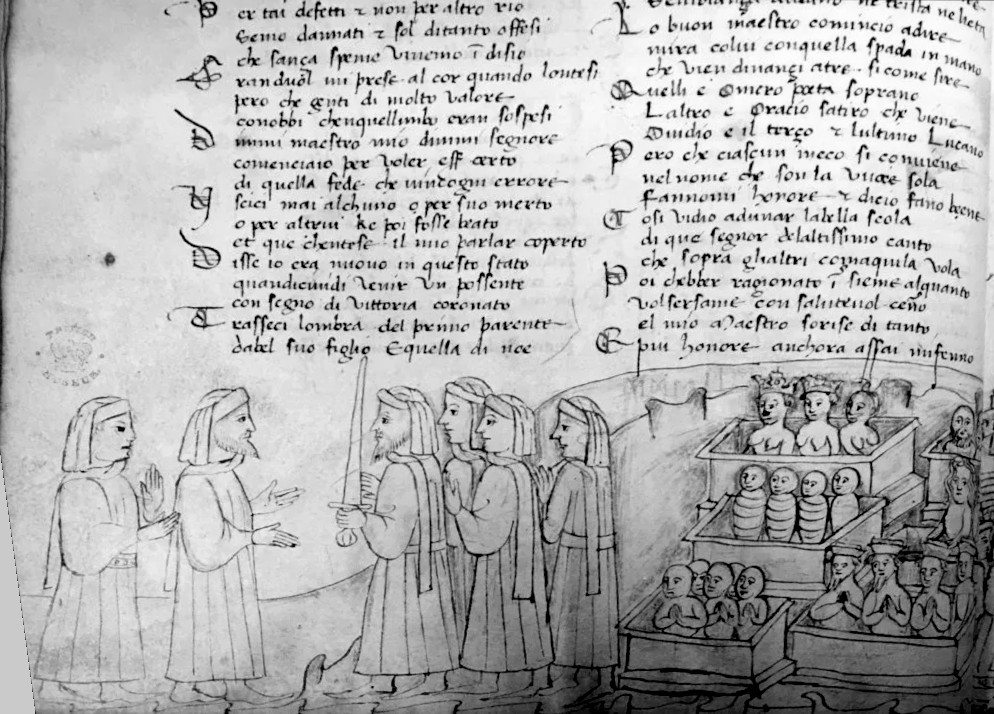 P er tai defetti ⁊ non per altro rio
Semo dannati ⁊ sol ditanto offesi
che sança speme vivemo ī disio
G randuol mi prese al cor quando lontesi
pero che genti di molto valore
conobbi chenquellimbo eran sospesi
D immi maestro mio dimmi segnore
comenciaio per voler esser certo
di quella fede che vincogni errore
U scici mai alchuno o per suo merto
o per altrui ke poi fosse beato
et que chentese il mio parlar coperto
D isse io era nuovo in questo stato
quandicividi venir un possente
con segno di vittoria coronato
T rasseci lombra del primo parente
dabel suo figlio Equella di noe
Sembianza ne trista ne lieta
L o buon maestro comincio adire
mira colui conquella spada in mano
che vien dinançi atre si come sire
Q uelli e Omero poeta soprano
Laltro e Oracio satiro che viene
Ovidio e il terço ⁊ lultimo Lucano
P ero che ciascun meco si conviene
nel nome che sono la voce sola
Fannomi honore ⁊ dicio fano bene
C osi vidio adunar labella scola
di que segnor delaltissimo canto
che sopra glialtri comaquila vola
D oi chebber ragionato ī sieme alquanto
volsersame con salutevol ceño
el mio Maestro sorise di tanto
E piu honore anchora assai mifenno